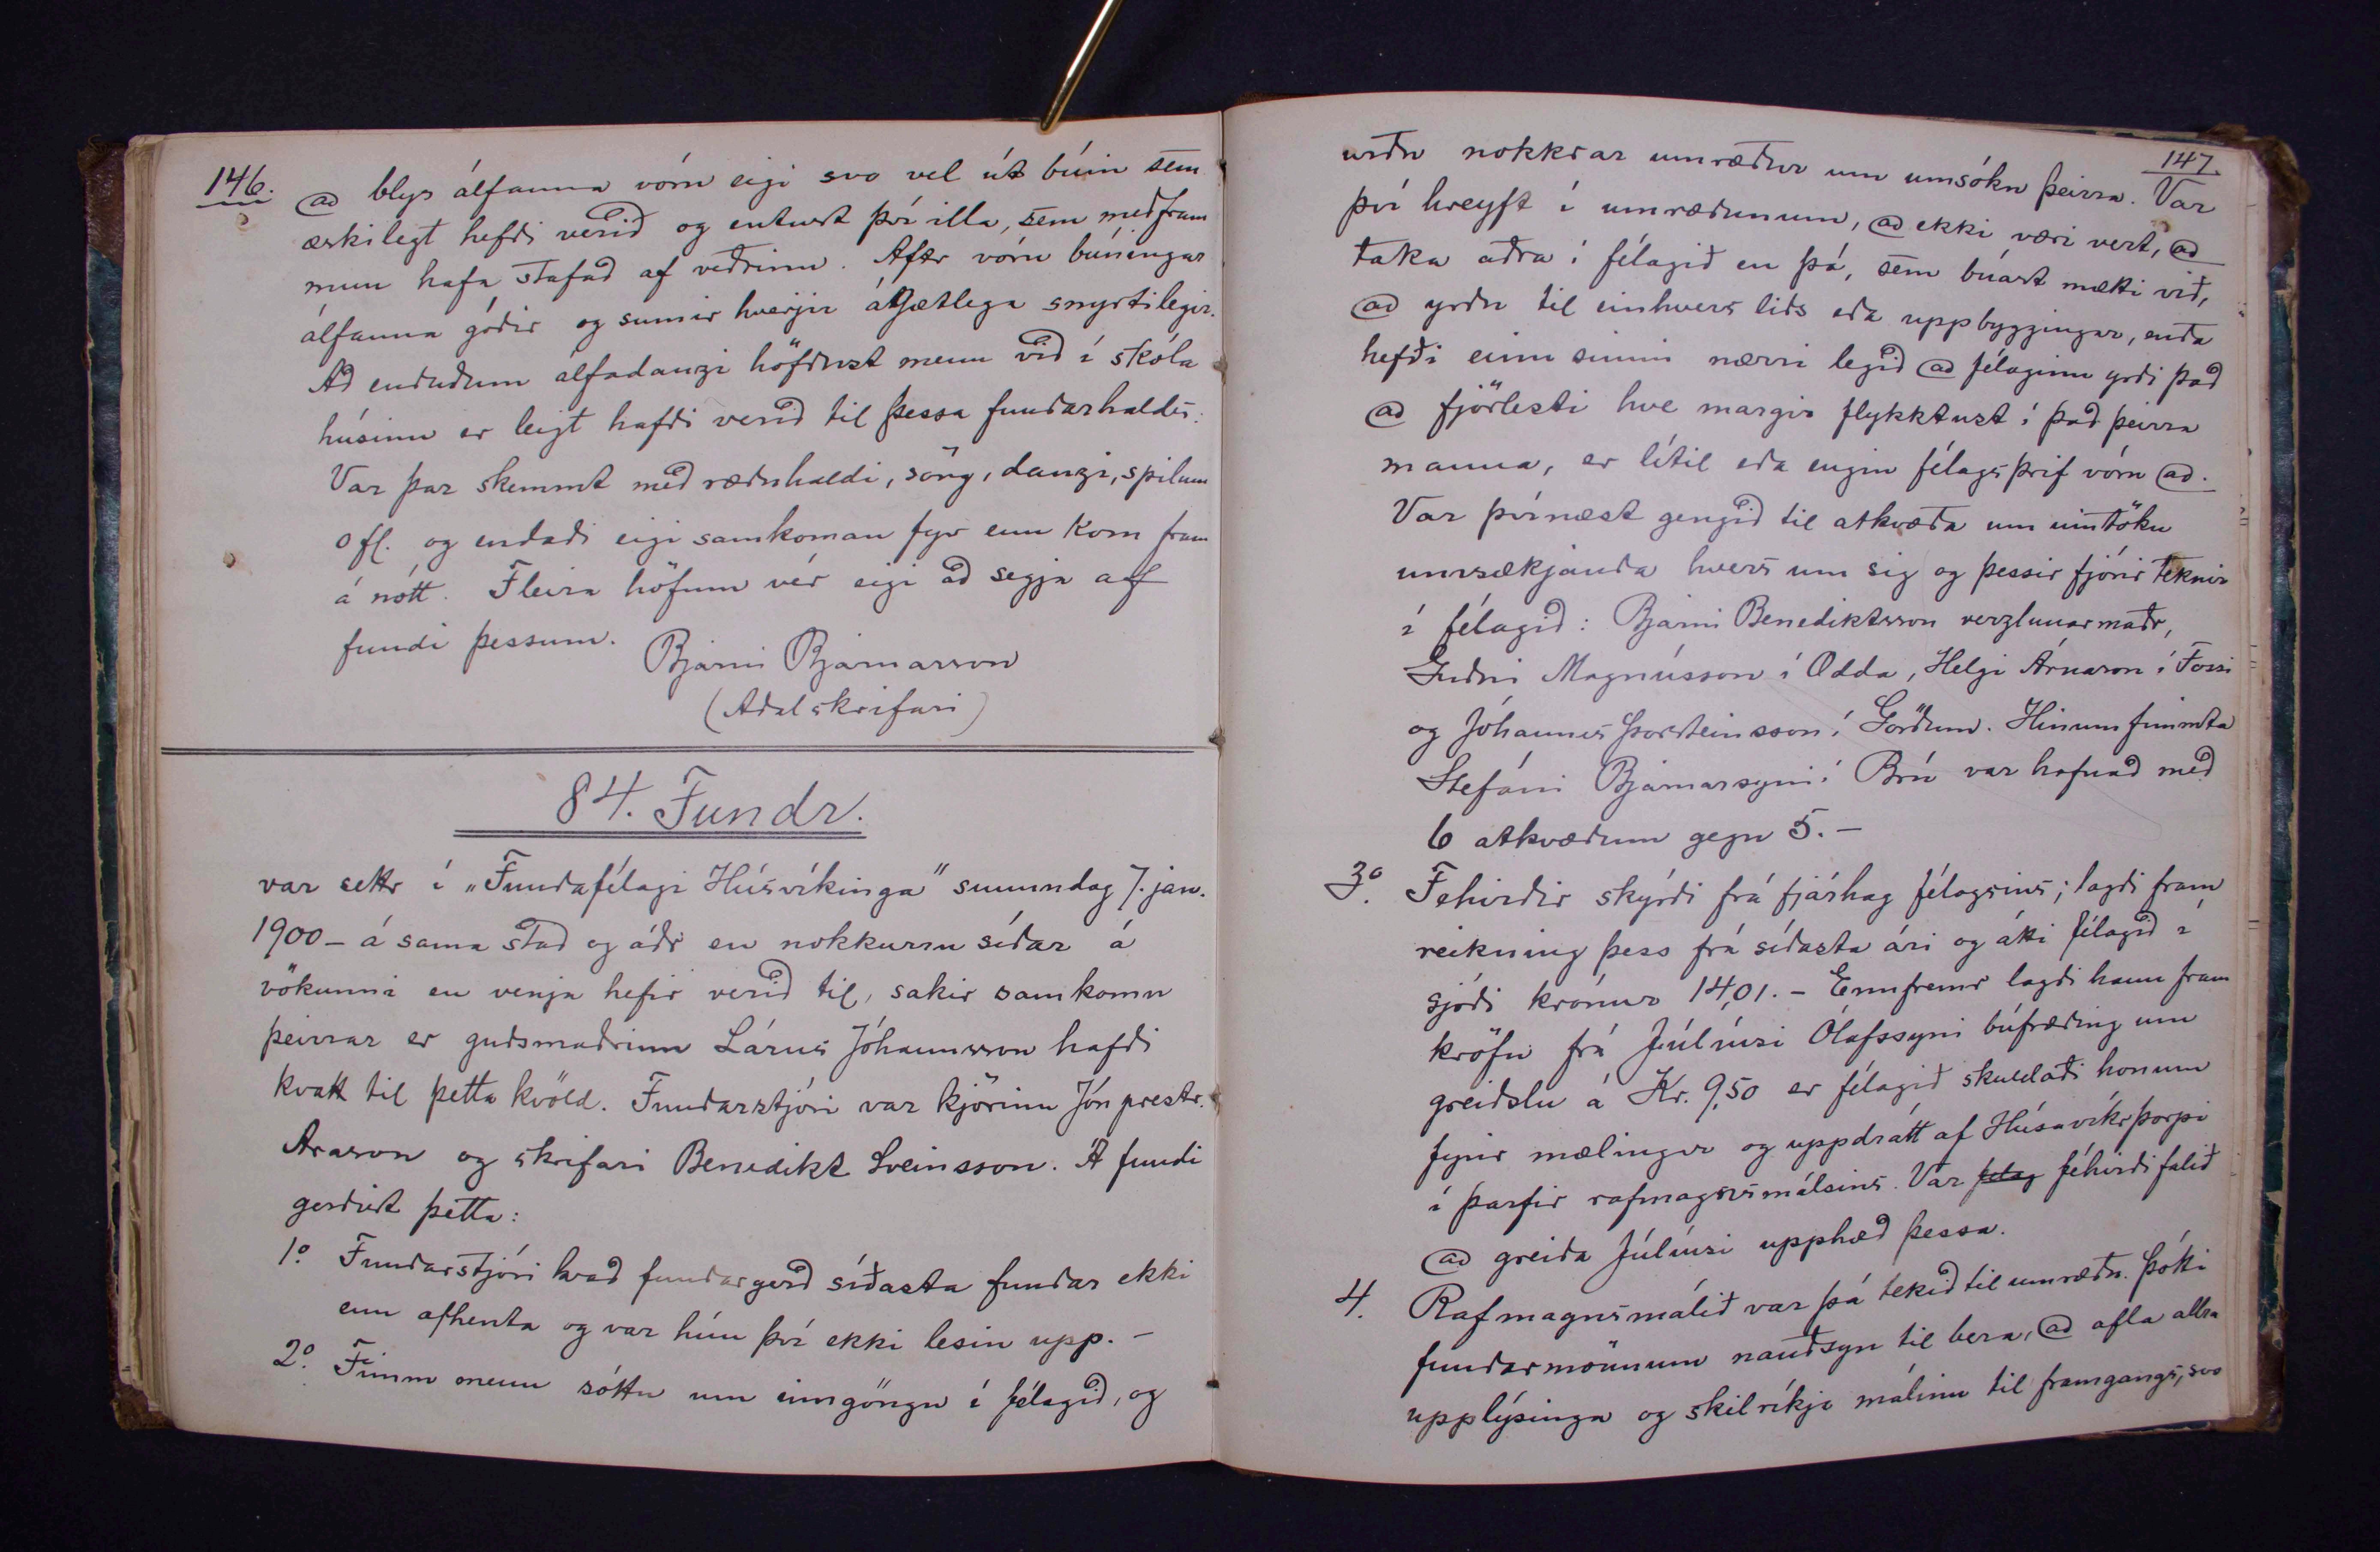 146.
að blys álfanna vóru eigi svo vel út búin sem
æskilegt hefði verið og entust því illa, sem meðfram
mun hafa stafað af veðrinu. Aftr vóru búningar
álfanna góðir og sumir hverjir ágætlega snyrtilegir.
Að enduðum álfadanzi höfðust menn við í skóla
húsinu er leigt hafði verið til þessa fundarhalds.
Var þar skemmt með ræðuhaldi, söng, danzi, spilum
ofl. og endaði eigi samkoman fyr enn kom fram
á nótt. Fleira höfum vér eigi að segja af
fundi þessum.
Bjarni Bjarnarson
(Aðalskrifari)
84. Fundr.
var settr í „Fundafélagi Húsvíkinga" sunnudag 7. jan.
1900 - á sama stað og áðr en nokkurru síðar á
vökunni en venja hefir verið til, sakir samkomu
þeirrar er guðsmaðrinn Lárus Jóhannsson hafði
kvatt til þetta kvöld. Fundarstjóri var kjörinn Jón prestr.
Arason og skrifari Benedikt Sveinsson. Á fundi
gerðist þetta:
1.º Fundarstjóri kvað fundargerð síðasta fundar ekki
enn afhenta og var hún því ekki lesin upp. -
2.º Fimm menn sóttu um inngöngu í félagið, og
147.
urðu nokkrar umræður um umsókn þeirra. Var
því hreyft í umræðunum, að ekki væri vert, að
taka aðra í félagið en þá, sem búast mætti við,
að yrðu til einhvers liðs eða uppbyggingar, enda
hefði einu sinni nærri legið að félaginu yrði það
að fjörlesti hve margir flykktust í það þeirra
manna, er lítil eða engin félagsþrif vóru að.
Var þvínæst gengið til atkvæða um inntöku
umsækjanda hvers um sig og þessir fjórir teknir
í félagið: Bjarni Benediktsson verzlunarmaðr,
Guðni Magnússon í Odda, Helgi Árnason í Fossi
og Jóhannes Þorsteinsson í Görðum. Hinum fimmta
Stefáni Bjarnarsyni í Brú var hafnað með
6 atkvæðum gegn 5. -
3.º Féhirðir skýrði frá fjárhag félagsins; lagði fram
reikning þess frá síðasta ári og átti félagið í
sjóði krónur 14,01. - Ennfremr lagði hann fram
kröfu frá Júlíusi Ólafssyni búfræðing um
greiðslu á Kr. 9,50 er félagið skuldaði honum
fyrir mælingar og uppdrátt af Húsavíkrþorpi
í þarfir rafmagnsmálsins. Var félag féhirði falið
að greiða Júlíusi upphæð þessa.
4. Rafmagnsmálið var þá tekið til umræðu. Þótti
fundarmönnum nauðsyn til bera, að afla allra
upplýsinga og skilríkja málinu til framgangs, svo